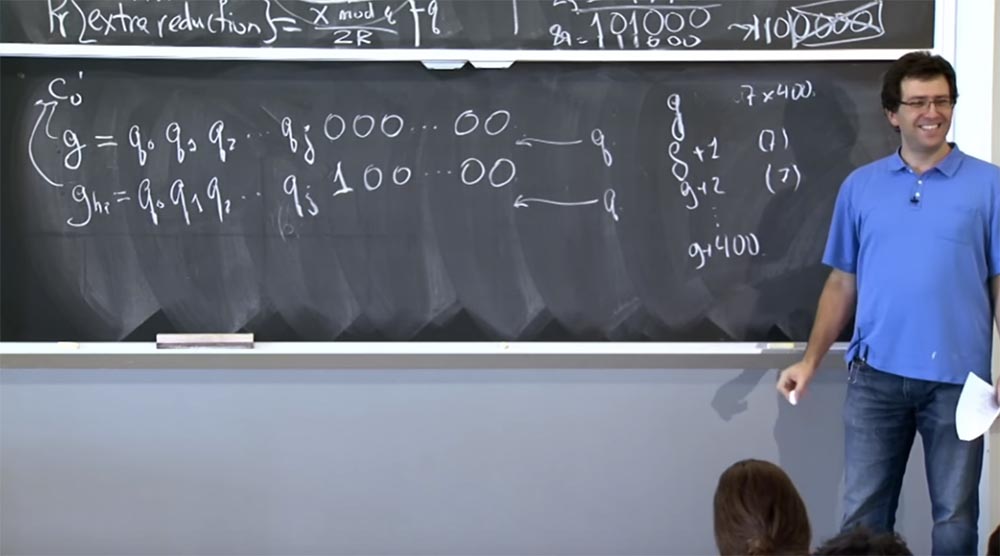 {extra reduction} = X mod q / 2R q
101000
g₁ = 111000 → 110000
C₀'
g = q₀ q₁ q₂ ... qⱼ 000 ... 00 ← q
gₕᵢ = q₀ q₁ q₂ ... qⱼ 100 ... 00 ← q
g 7 × 400
g+1 (7)
g+2 (7)
⋮
g+400